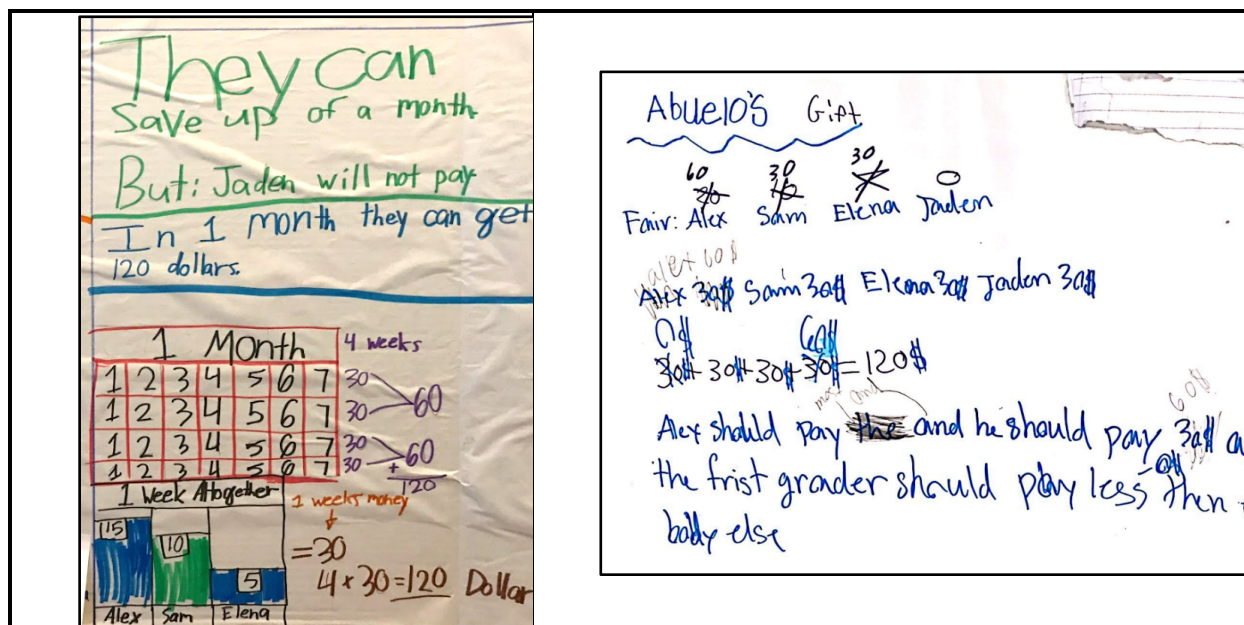 They can
Save up of a month
But: Jaden will not pay
In 1 month they can get
120 dollars.
1 Month
4 weeks
1 2 3 4 5 6 7 30
1 2 3 4 5 6 7 30 60
1 2 3 4 5 6 7 30
1 2 3 4 5 6 7 30 + 60
120
1 Week Altogether
1 weeks money
15
10
5
=30
4 × 30 = 120 Dollar
Alex Sam Elena
Abuelo's Gift
60 30 30 0
Fair: Alex Sam Elena Jaden
alex 60$
Alex 30$ Sam 30$ Elena 30$ Jaden 30$
0$ 60$
30$+ 30$+30$+30$=120$
more and 60$
Alex should pay the and he should pay 30$ a
the frist grader should play less then
0$
body else